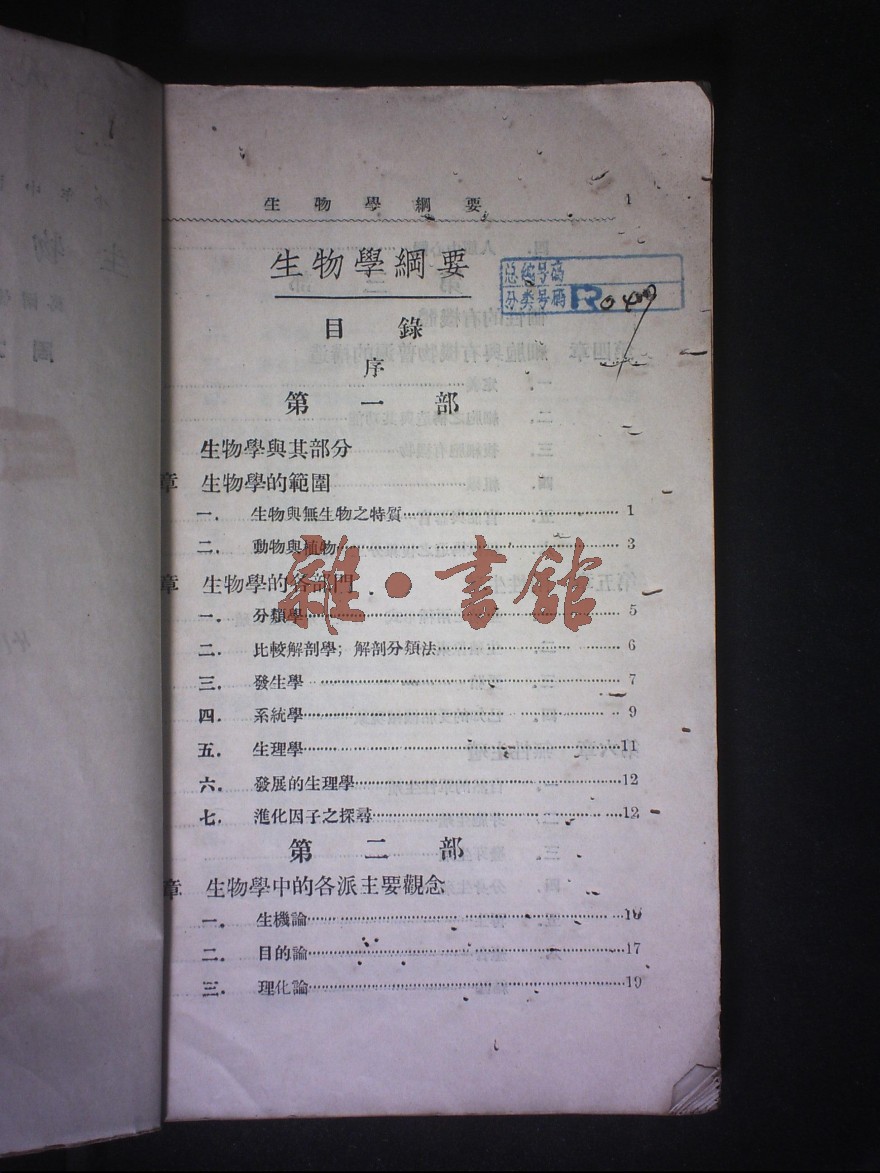 生物學綱要 1
生物學綱要
总编号码
分类号码 R
目錄
序
第一部
生物學與其部分
章 生物學的範圍
一. 生物與無生物之特質 1
二. 動物與植物 3
章 生物學的各部門
雜·書館
一. 分類學 5
二. 比較解剖學；解剖分類法 6
三. 發生學 7
四. 系統學 9
五. 生理學 11
六. 發展的生理學 12
七. 進化因子之探尋 12
第二部
章 生物學中的各派主要觀念
一. 生機論 16
二. 目的論 17
三. 理化論 19